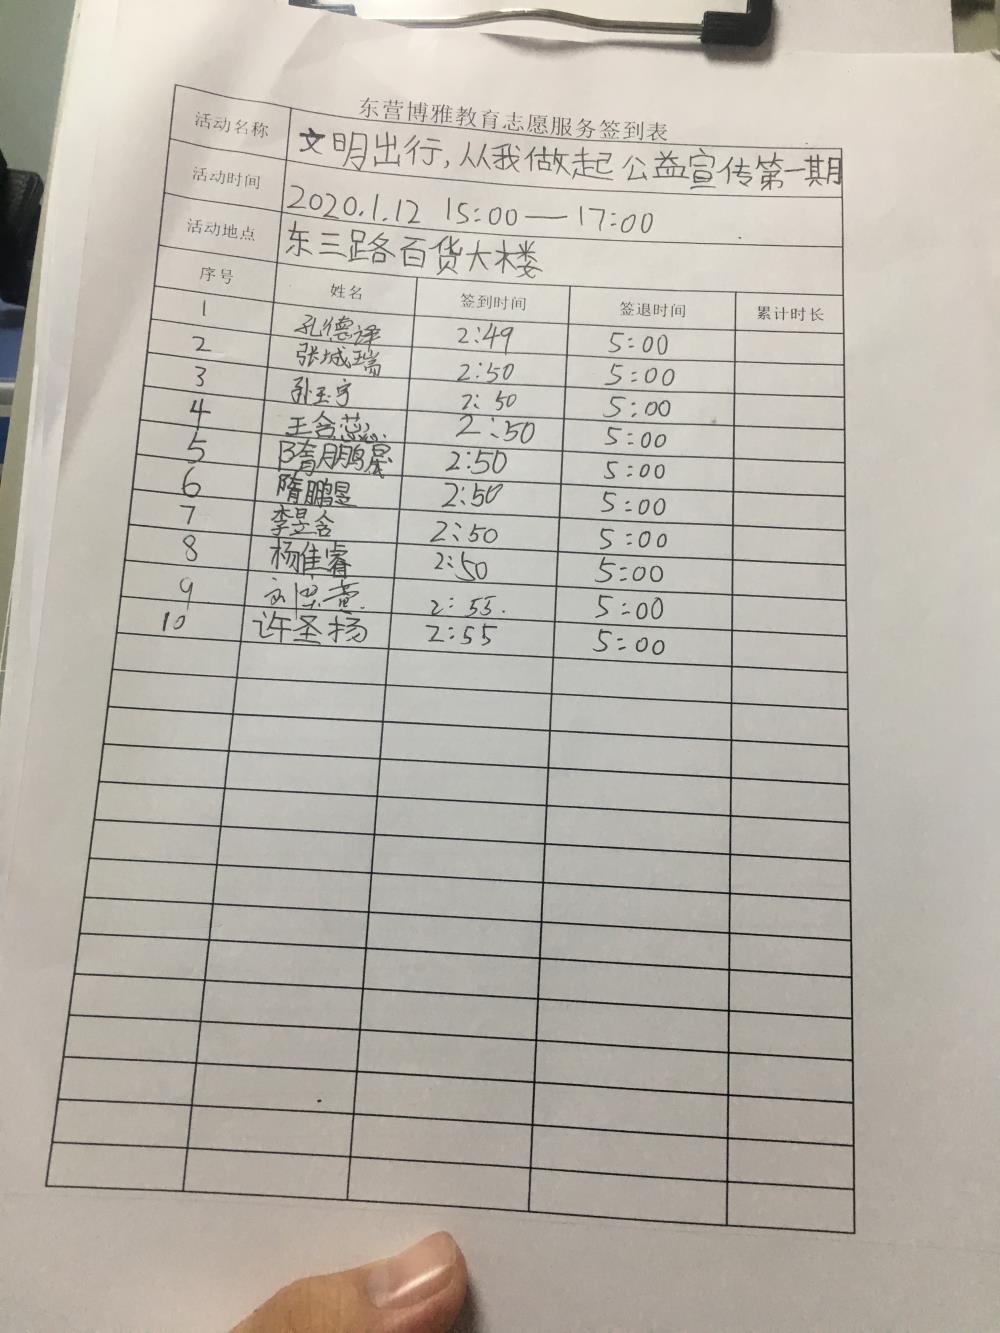 东营博雅教育志愿服务签到表
活动名称 文明出行,从我做起 公益宣传第一期
活动时间 2020.1.12 15:00—17:00
活动地点 东三路百货大楼
序号 姓名 签到时间 签退时间 累计时长
1 孔德译 2:49 5:00
2 张城瑞 2:50 5:00
3 孙玉宁 2:50 5:00
4 王含蕊 2:50 5:00
5 隋鹏晟 2:50 5:00
6 隋鹏昱 2:50 5:00
7 李昱含 2:50 5:00
8 杨佳睿 2:50 5:00
9 刘 2:55. 5:00
10 许圣扬 2:55 5:00